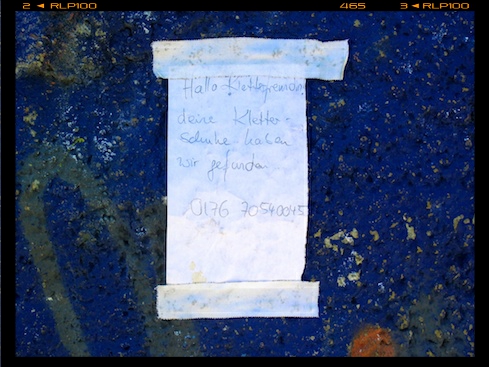 2 ◄ RLP100 465 3 ◄ RLP100
Hallo Kletterfreundin
deine Kletter-
schuhe haben
wir gefunden
0176 70540045